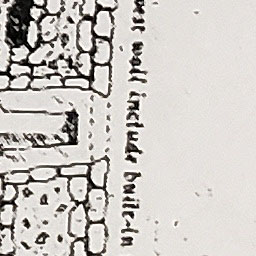 wall include built-in